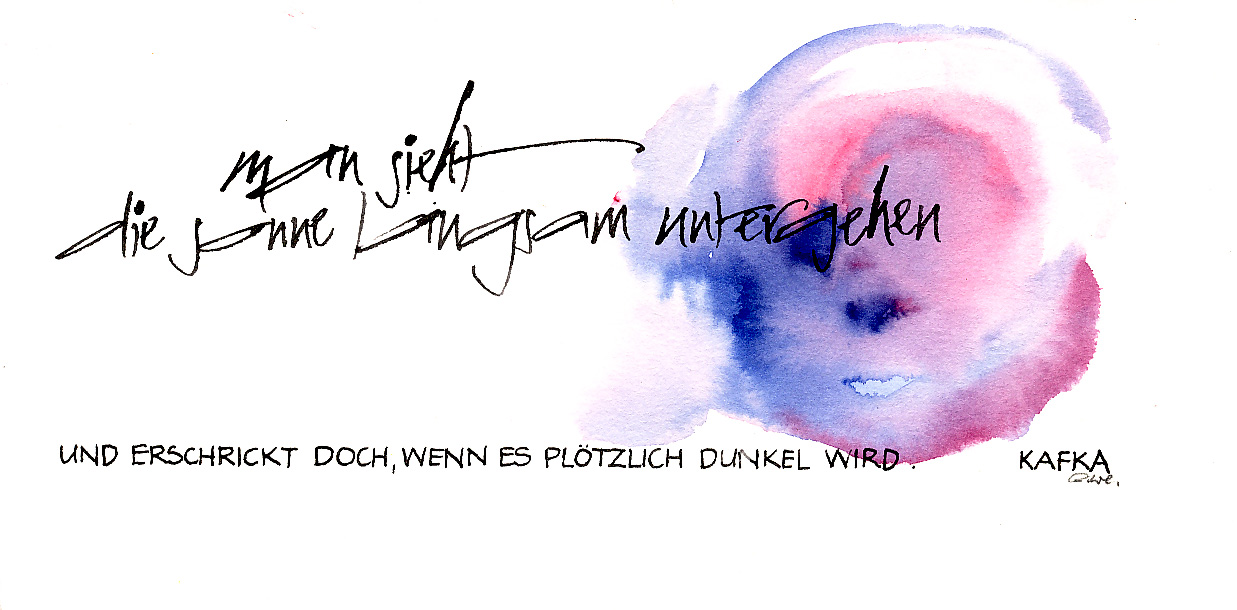 man sieht
die sonne langsam untergehen
UND ERSCHRICKT DOCH, WENN ES PLÖTZLICH DUNKEL WIRD. KAFKA